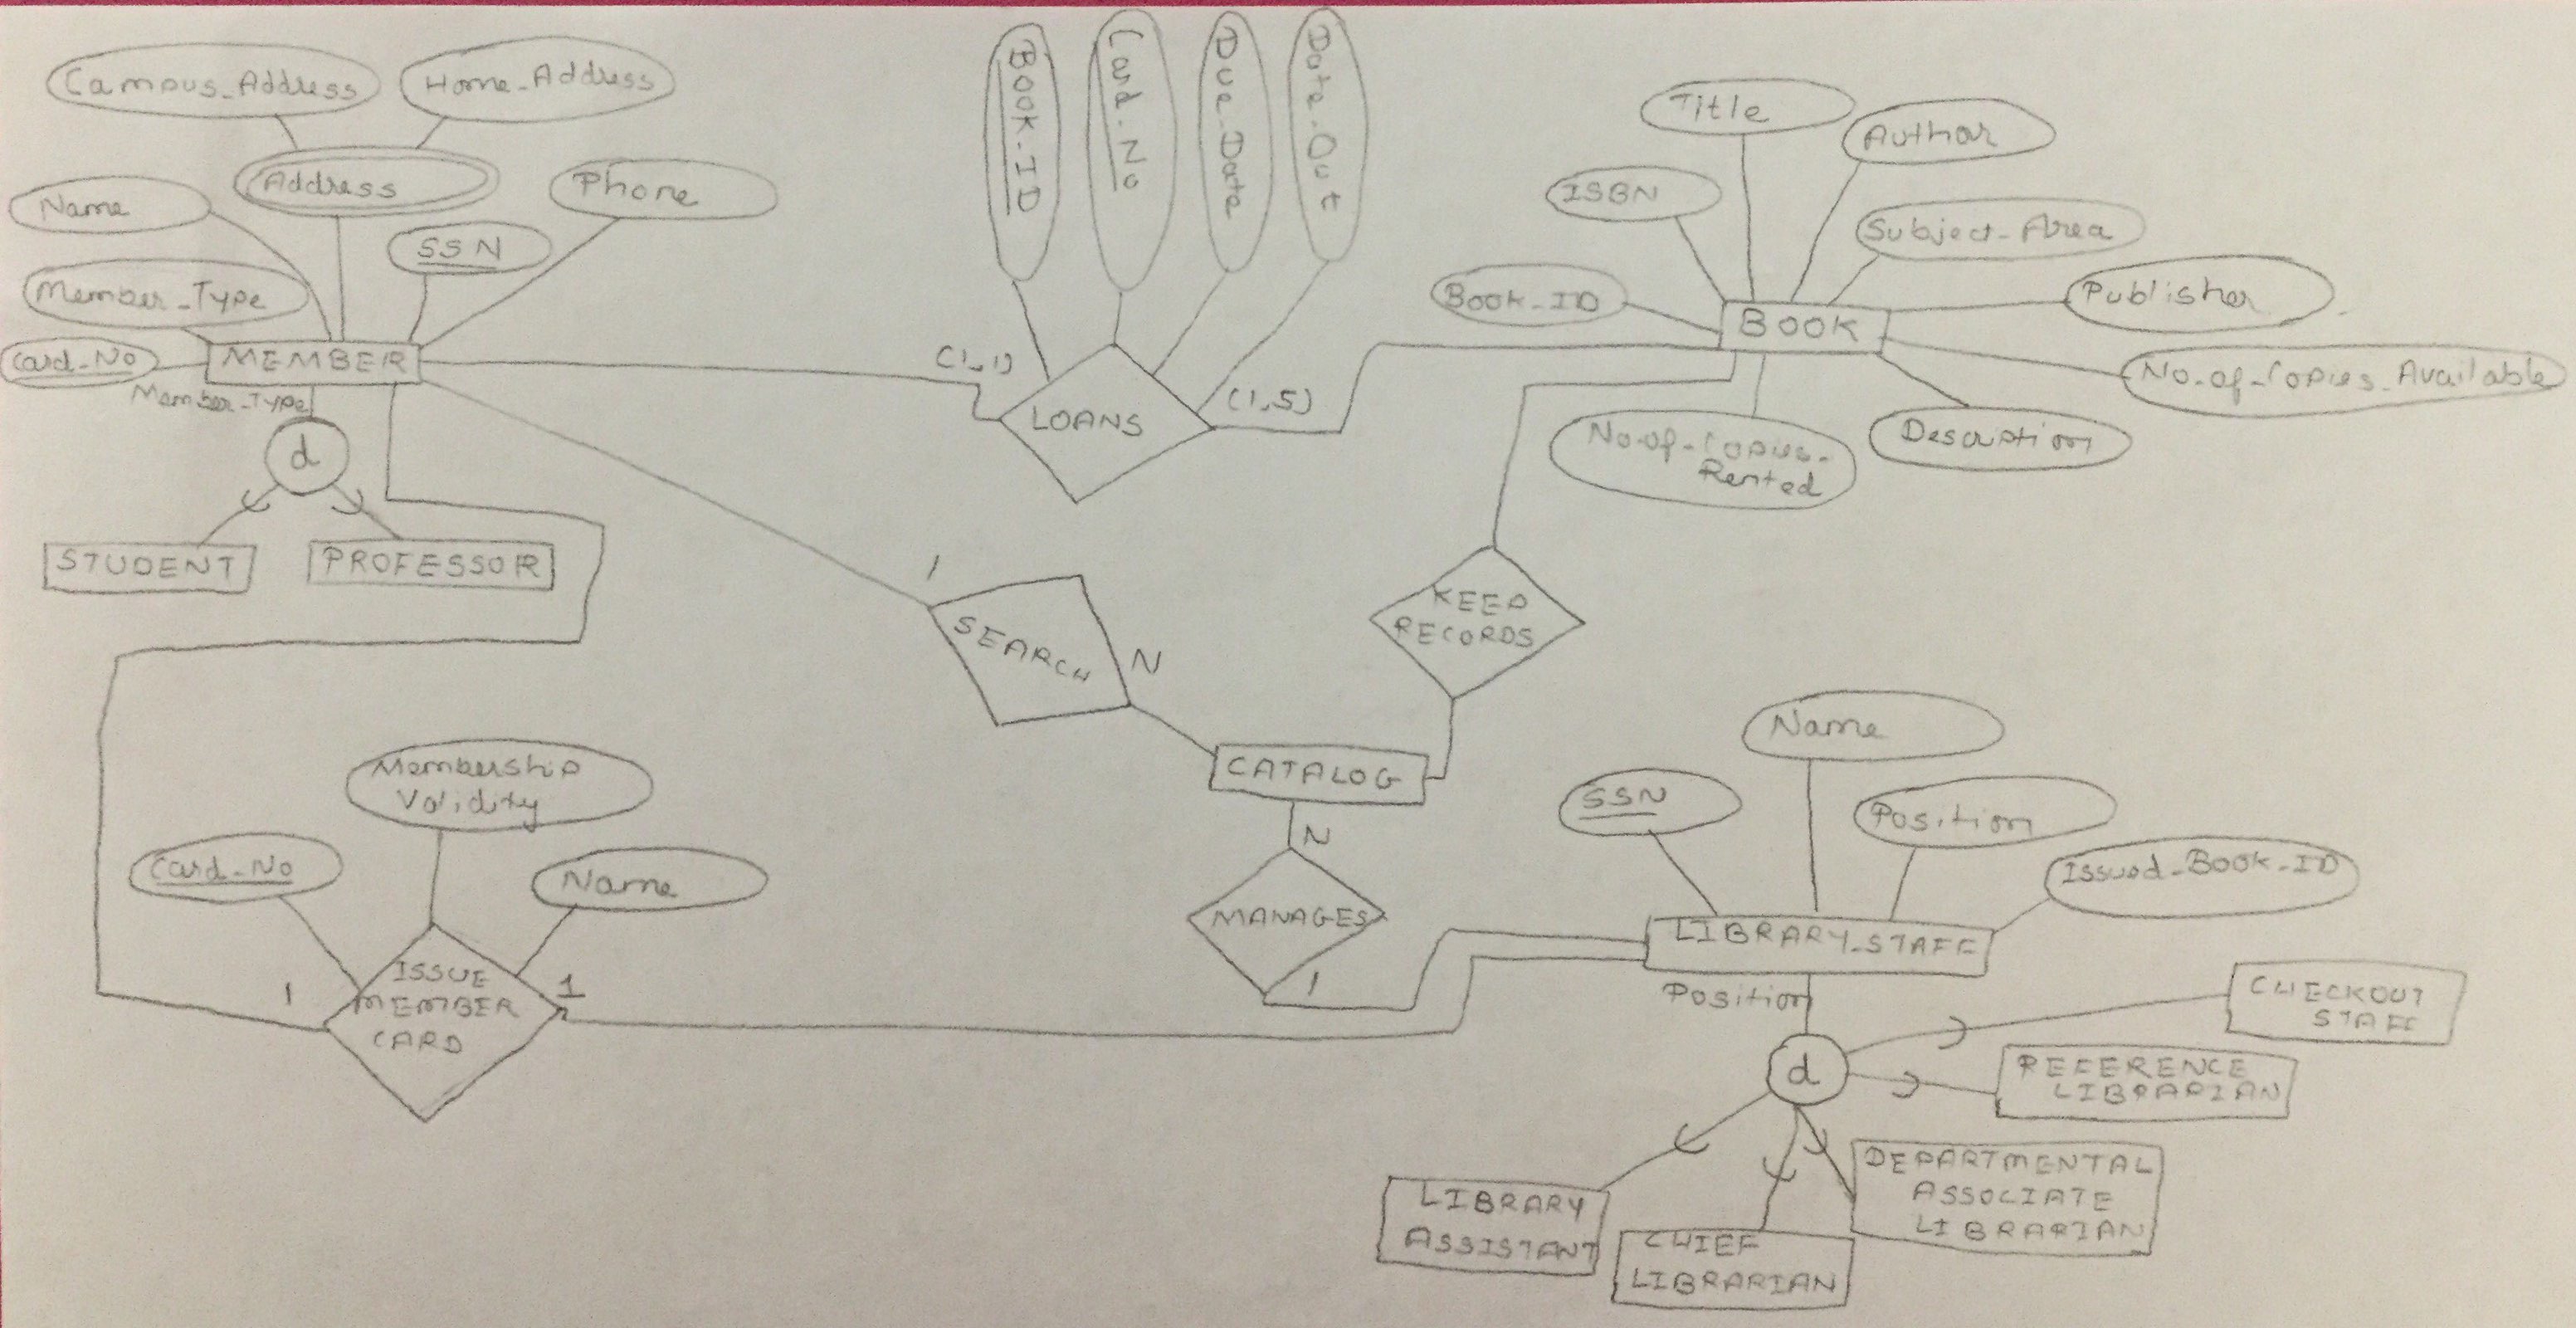 Campus_Address
Home_Address
Address
Name
Phone
SSN
Member_Type
Card_No
MEMBER
Member_Type
d
STUDENT
PROFESSOR
Book_ID
Card_No
Due_Date
Date_Out
(1,1)
LOANS
(1,5)
Title
Author
ISBN
Subject_Area
Book_ID
Publisher
BOOK
No_of_Copies_Available
No_of_Copies_
Rented
Description
1
SEARCH
N
KEEP
RECORDS
CATALOG
N
MANAGES
1
Membership
Validity
Card_No
Name
1
ISSUE
MEMBER
CARD
1
Name
SSN
Position
Issued_Book_ID
LIBRARY_STAFF
Position
d
CHECKOUT
STAFF
REFERENCE
LIBRARIAN
DEPARTMENTAL
ASSOCIATE
LIBRARIAN
LIBRARY
ASSISTANT
CHIEF
LIBRARIAN